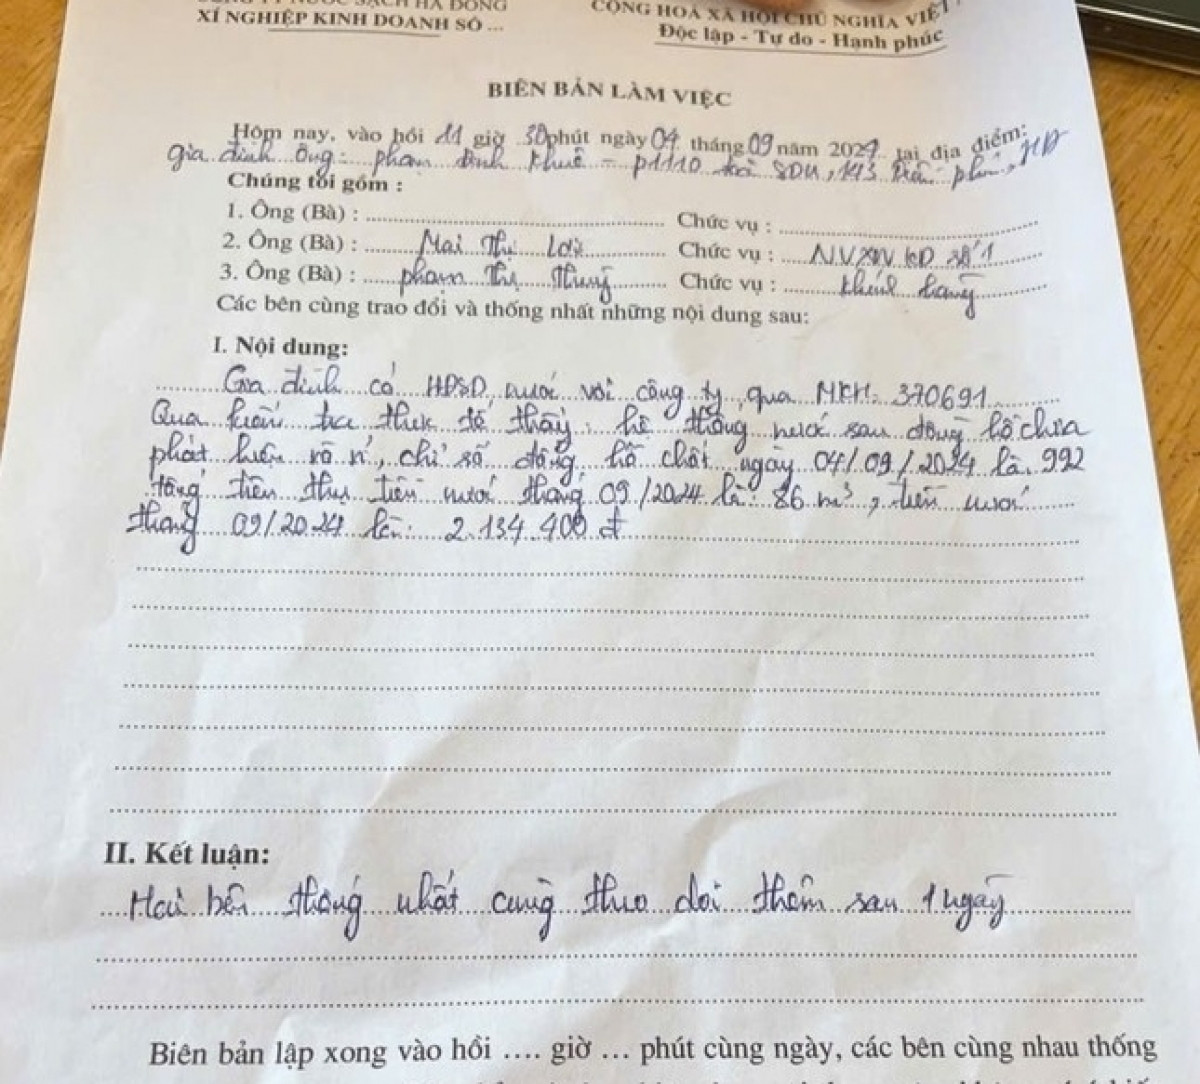 NƯỚC SẠCH HÀ ĐÔNG
XÍ NGHIỆP KINH DOANH SỐ ...
CỘNG HOÀ XÃ HỘI CHỦ NGHĨA VIỆT
Độc lập - Tự do - Hạnh phúc
BIÊN BẢN LÀM VIỆC
Hôm nay, vào hồi 11 giờ 30 phút ngày 04 tháng 09 năm 2024 tại địa điểm:
Gia đình Ông: phạm đình Khuê - P1110 toà SDU, 143 Trần phú, HĐ
Chúng tôi gồm :
1. Ông (Bà) : Chức vụ :
2. Ông (Bà) : Mai Thị Chức vụ : NVXN KD số 1
3. Ông (Bà) : phạm Thị Chức vụ : khách hàng
Các bên cùng trao đổi và thống nhất những nội dung sau:
I. Nội dung:
Gia đình có nước với công ty, qua MKH: 370691
Qua kiểm tra thực tế thấy: hệ thống nước sau đồng hồ chưa
phát hiện rò rỉ, chỉ số đồng hồ chốt ngày 04/09/2024 là 992
tổng tiêu thụ tiền nước tháng 09/2024 là: 86 m³, tiền nước
tháng 09/2024 là: 2.134.400 đ
II. Kết luận:
Hai bên thống nhất cùng theo dõi thêm sau 1 ngày
Biên bản lập xong vào hồi .... giờ ... phút cùng ngày, các bên cùng nhau thống